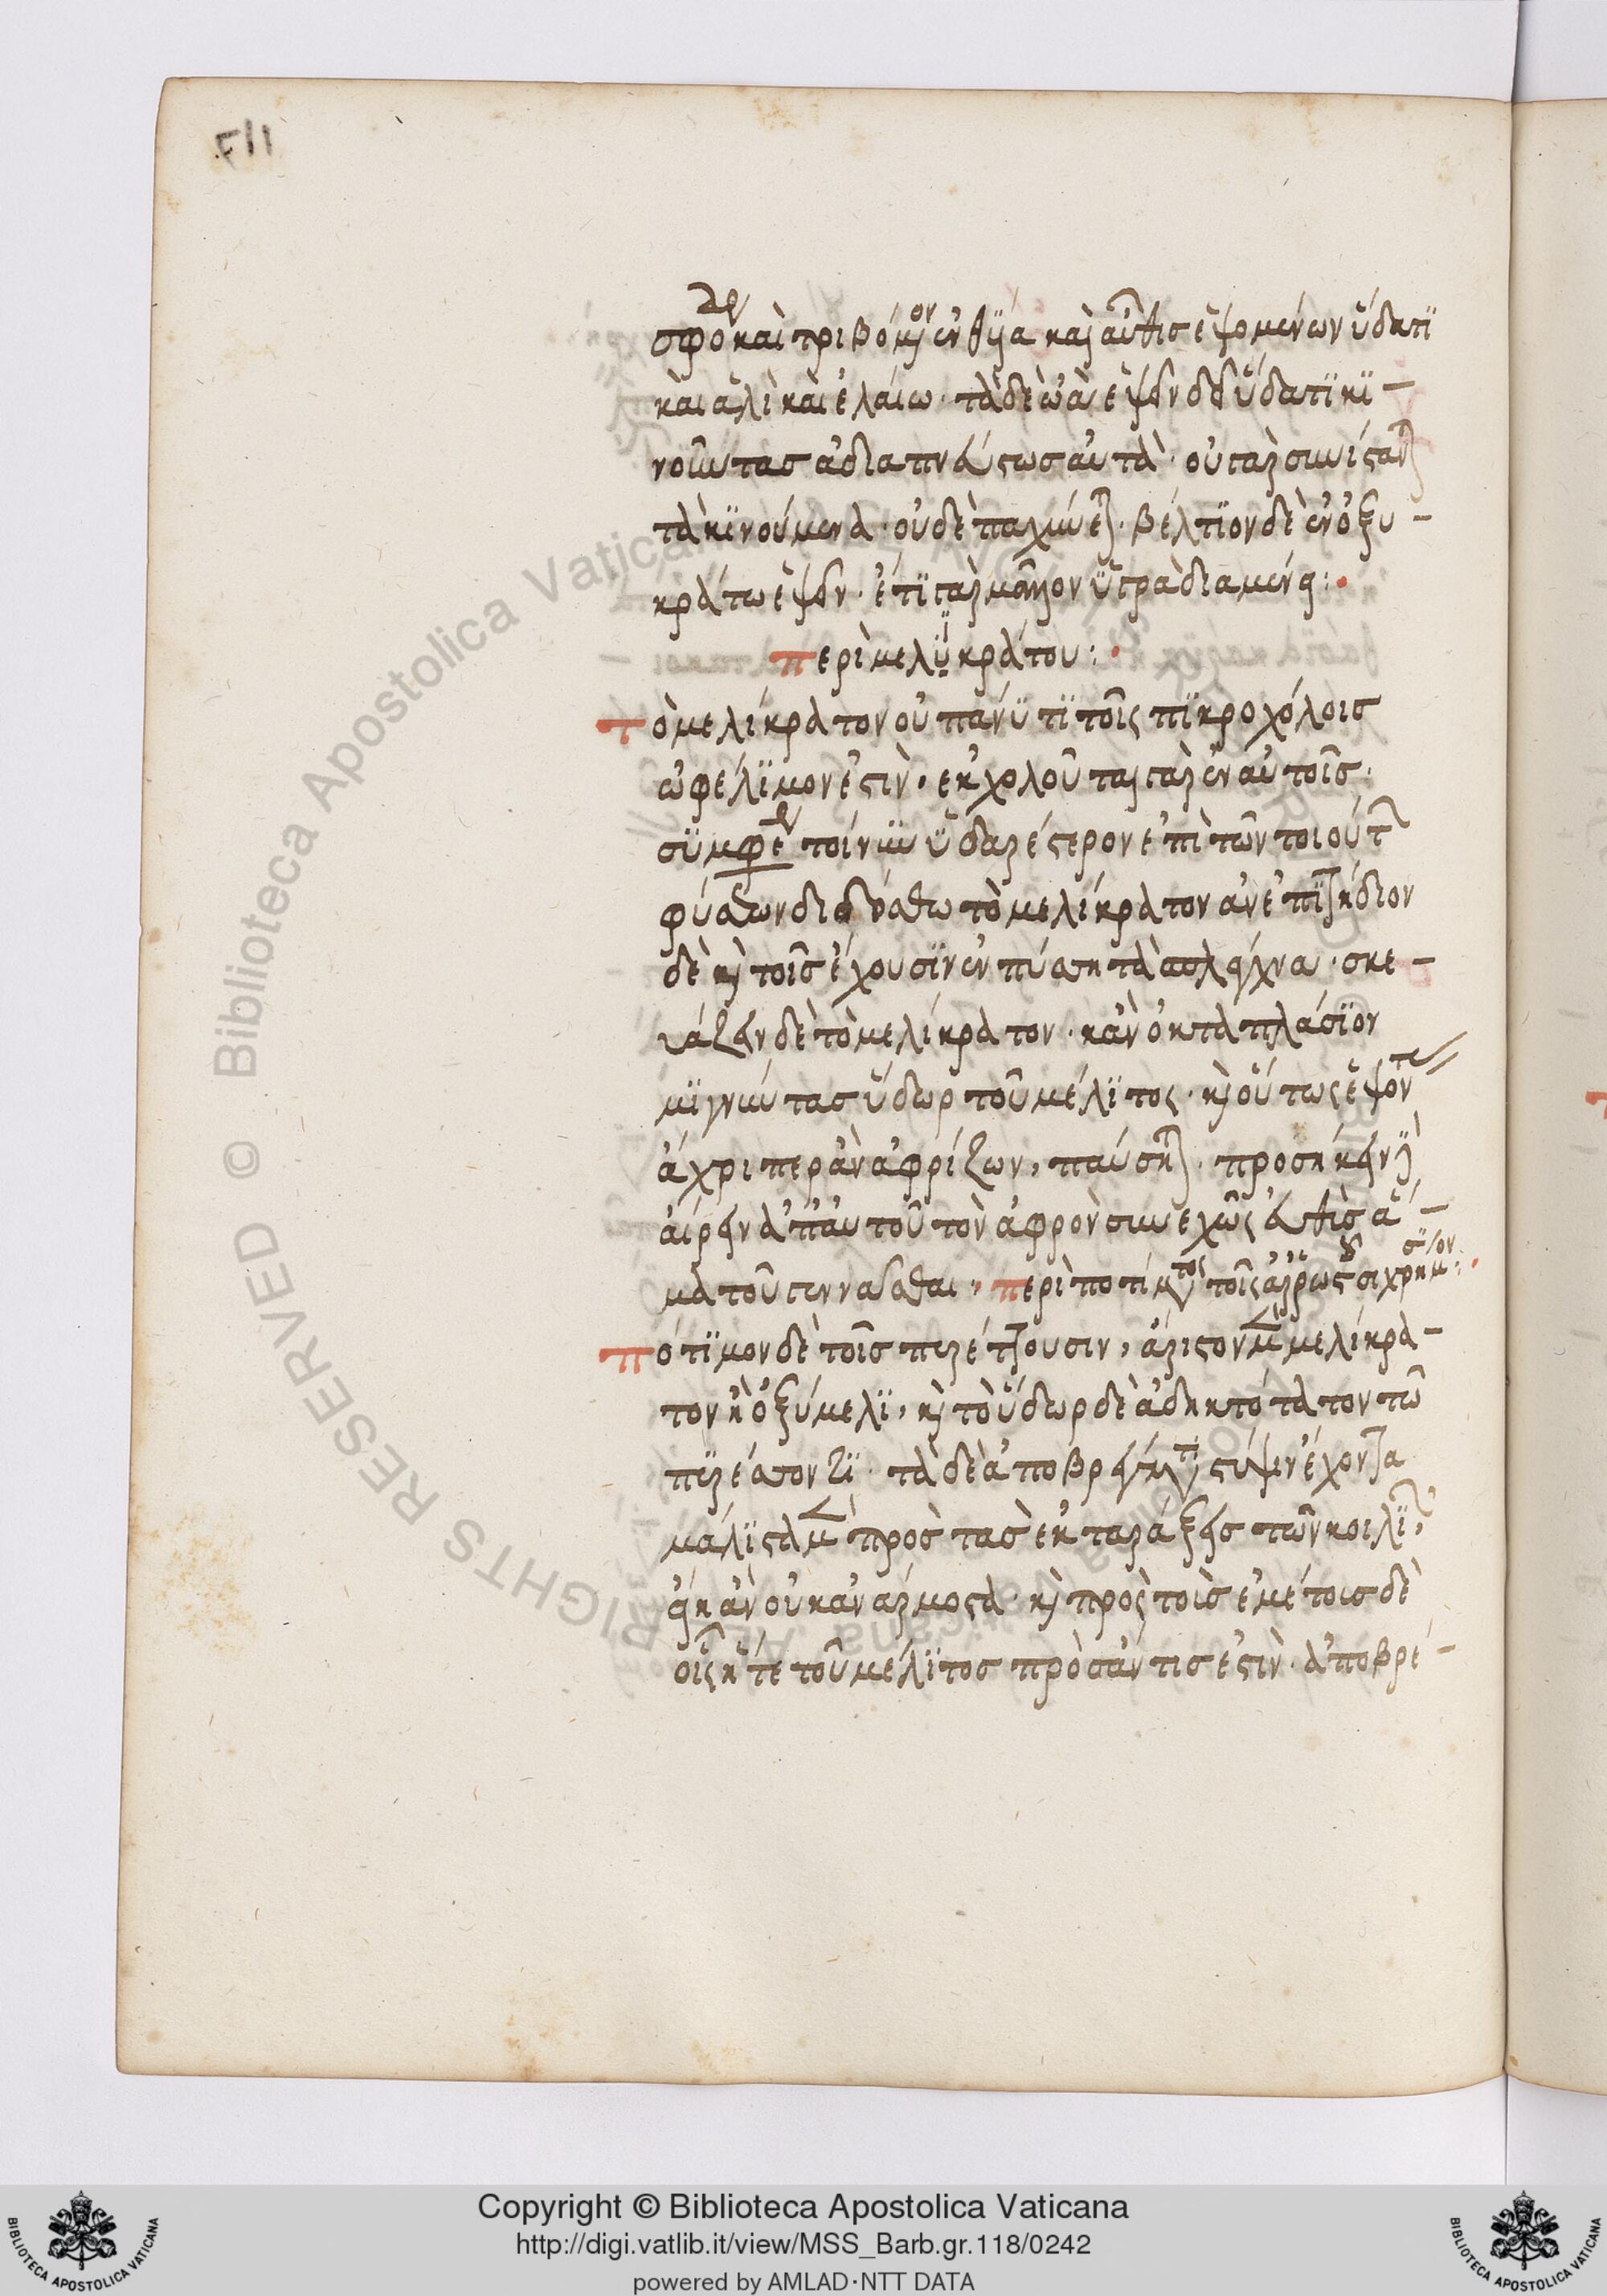 σφοδρ καὶ τριβόμενον ἐν θυία καὶ αὖθις ἑψομένων ὕδατϊ
καὶ ἅλὶ καὶ ἐλαίω · τὰ δὲ ὠὰ ἕψειν δεῖ ὕδατϊ κϊ –
νοῦντας ἀδιαπνεύστως αὐτὰ · οὐ γὰρ συνίσταν
τὰ κϊνούμενα · οὐδὲ παχύνετ · βέλτϊον δὲ ἐν ὀξυ –
κράτω ἕψειν · ἔτϊ γὰρ μᾶλλον ὑγρὰ διαμένει :·
περὶ μελϊκράτου :·
τὸ μελίκρατον οὐ πάνϋ τϊ τοῖς πϊκροχόλοις
ὠφέλϊμον ἐστὶν, ἐκχολοῦται γὰρ ἐν αὐτοῖς ·
σϋμφέρει τοίνυν ὑδαρέστερον ἐπὶ τῶν τοιούτ
φύσεων διδόσθω τὸ μελίκρατον ἀνεπϊτήδιον
δὲ καὶ τοῖς ἔχουσϊν ἐμπύασι τὰ σπλάγχνα · σκε –
υάζειν δὲ τὸ μελίκρατον · κἂν ὀκταπλάσϊον
μϊγνύντας ὕδωρ τοῦ μέλϊτος · καὶ οὕτως ἕψοντ
ἄχρι περ ἂν ἀφρίζων, παύσητ · προσήκειν
αἴρειν ἀπ' αὐτοῦ τὸν ἀφρὸν συνεχῶς εὐθὺς ἅ –
μα τοῦ γεννᾶσθαι, περὶ ποτίματος τοῖς ἀρρωστοῦσι χρησΐμον :·
πότϊμον δὲ τοῖς πυρέττουσιν, ἄριστον μὲν μελίκρα –
τον ἢ ὀξύμελϊ, καὶ τὸ ὕδωρ δὲ ἀδηκτότατον τῶ
πϋρέσσοντϊ · τὰ δὲ ἀποβρέγματ στύψιν ἔχοντα
μάλϊστα μὲν πρὸς τὰς ἐκταράξεις τῶν κοιλϊ,
εἴη ἂν οὐκ ἀνάρμοστα · καὶ πρὸς τοὺς ἐμέτους δὲ
οἷς ἥ τε τοῦ μέλϊτος πρόσαντις ἐστὶν · ἀποβρέ –
Copyright © Biblioteca Apostolica Vaticana
http://digi.vatlib.it/view/MSS_Barb.gr.118/0242
powered by AMLAD·NTT DATA